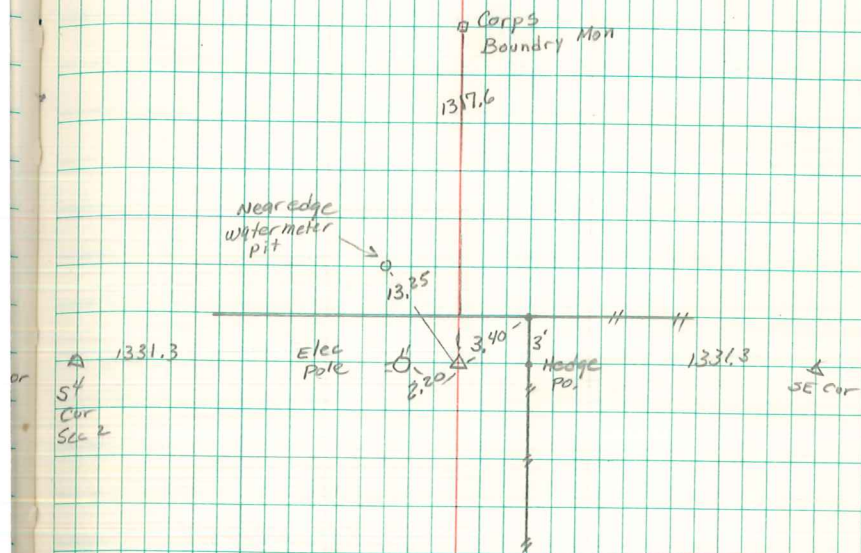 Corps
Boundry Mon
1317.6
Near edge
watermeter
pit
13.25
1331.3
Elec
Pole
2.20
3.40
3'
Hedge
Po.
1331.3
SE Cor
or
S4
Cor
Sec 2